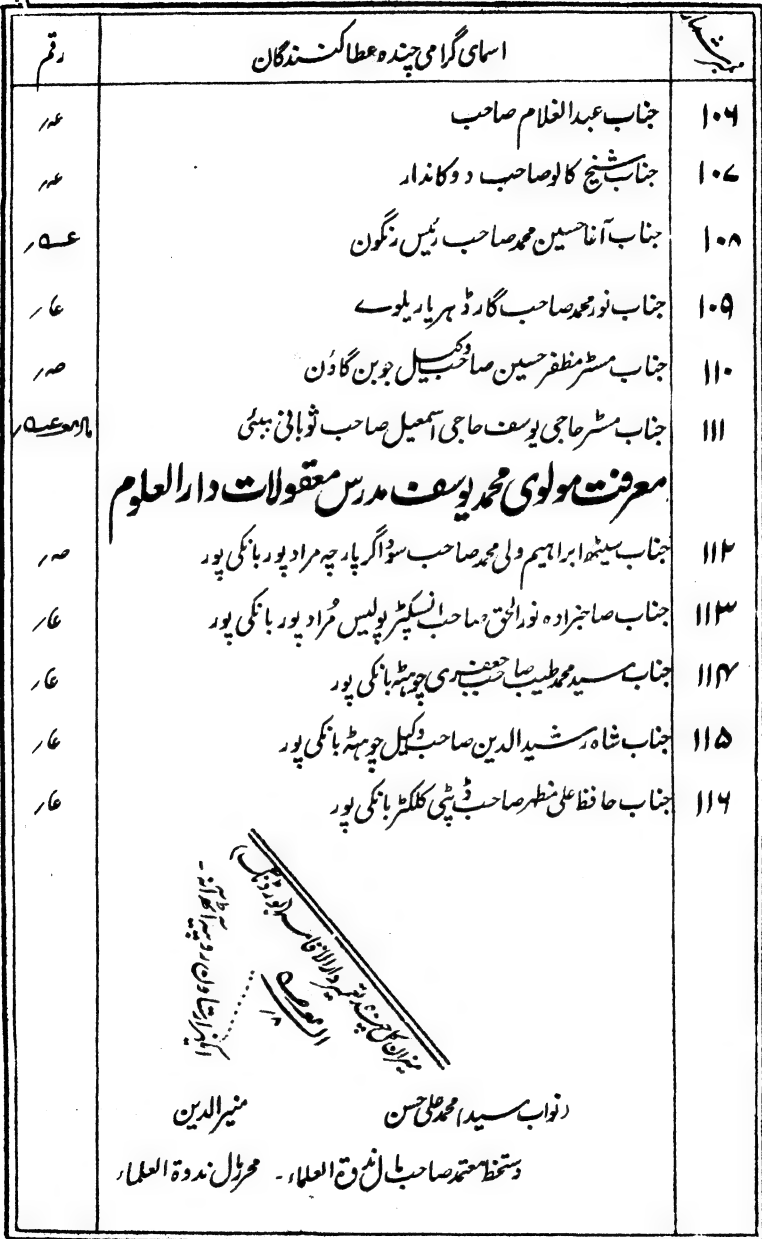 نمبر شمار اسمای گرامی چندہ عطا کنندگان رقم
۱۰۶ جناب عبدالغلام صاحب عہ/
۱۰۷ جناب شیخ کالو صاحب دوکاندار عہ/
۱۰۸ جناب آغا حسین محمد صاحب رئیس رنگون
۱۰۹ جناب نور محمد صاحب گارڈ ہریا ریلوے عا/
۱۱۰ جناب مسٹر مظفر حسین صاحب وکیل جوبن گاؤں صہ/
۱۱۱ جناب مسٹر حاجی یوسف حاجی اسمٰعیل صاحب ثوبانی بمبئی
معرفت مولوی محمد یوسف مدرس معقولات دارالعلوم
۱۱۲ جناب سیٹھ ابراہیم ولی محمد صاحب سوداگر پارچہ مراد پور بانکی پور صہ/
۱۱۳ جناب صاحبزادہ نورالحق صاحب انسپکٹر پولیس مُراد پور بانکی پور عا/
۱۱۴ جناب سید محمد طیب صاحب جعفری چوہٹہ بانکی پور عا/
۱۱۵ جناب شاہ رشید الدین صاحب وکیل چوہٹہ بانکی پور عا/
۱۱۶ جناب حافظ علی مظہر صاحب ڈپٹی کلکٹر بانکی پور عا/
میزان کل چندہ تعمیر دارالاقامہ (بورڈنگ)
۸/
روپیہ آٹھ آنہ۔
(نواب سید) محمد علی حسن منیر الدین
دستخط معتمد صاحب مال ندوۃ العلماء۔ محرر مال ندوۃ العلماء،